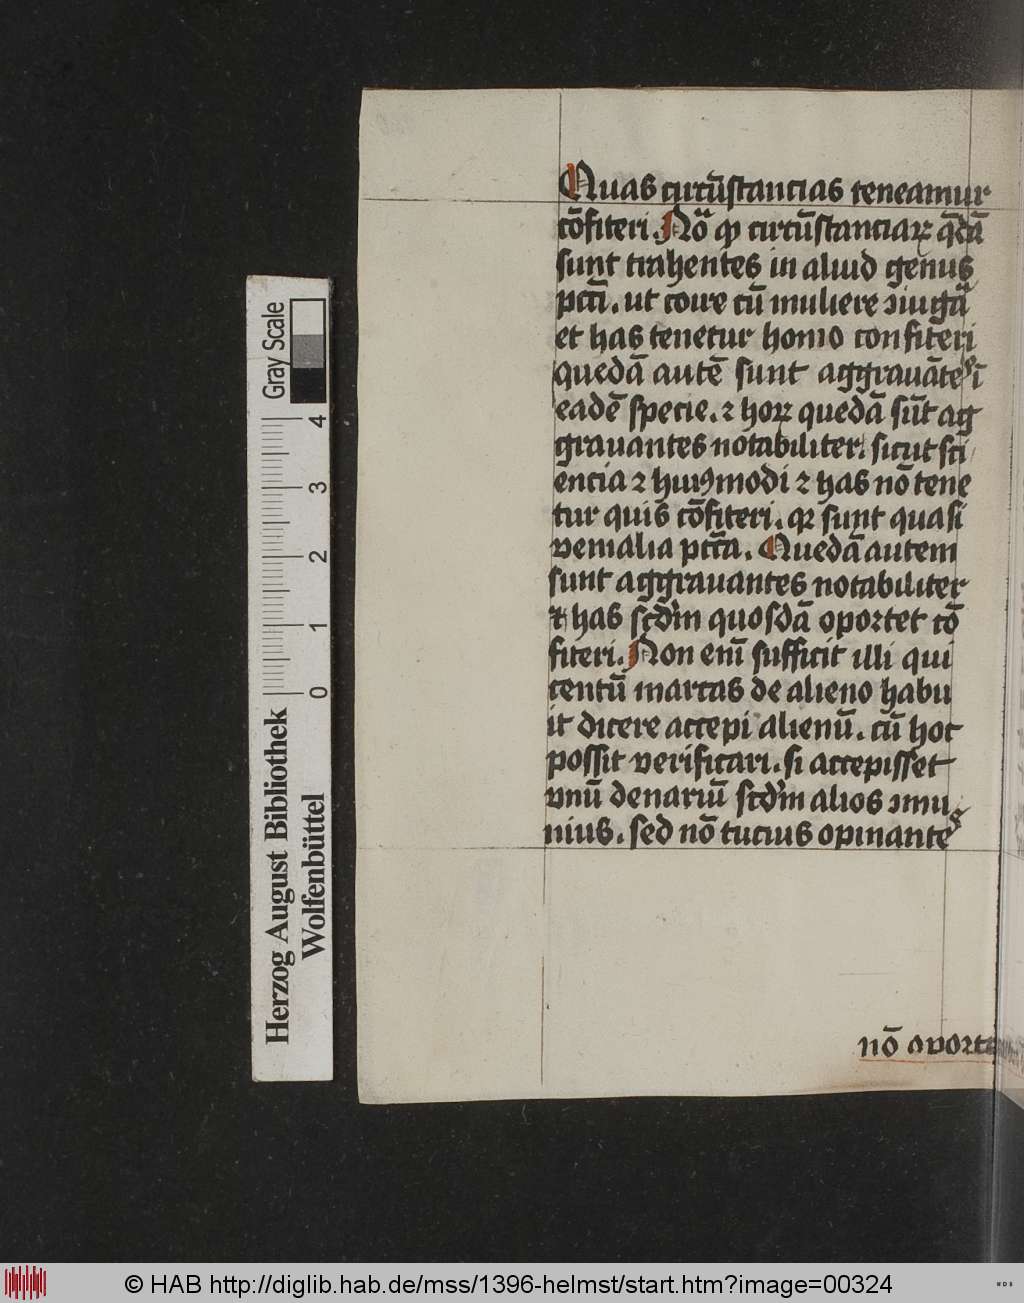 Quas circūstancias teneamur
cōfiteri. Nōᵃ ꝙ circūstanciaꝝ q̄dā
sunt trahentes in aliud genus
pctī. ut coire cū muliere ꝯiugā
et has tenetur homo confiteri
quedā autē sunt aggrauātes ī
eadē specie. ⁊ hoꝝ quedā sūt ag
grauantes notabiliter. sicut sci
encia ⁊ huiꝰmodi ⁊ has nō tene
tur quis cōfiteri. qꝛ sunt quasi
venialia pctā. Quedā autem
sunt aggrauantes notabiliter
⁊ has scd̄m quosdā oportet cō
fiteri. Non enī sufficit illi qui
centū marcas de alieno habu
it dicere accepi alienū. cū hoc
possit verificari. si accepisset
vnū denariū scd̄m alios ꝯmu
nius. sed nō tucius opinantes
nō oporte
Herzog August Bibliothek
Wolfenbüttel
0 1 2 3 4
Gray Scale
© HAB http://diglib.hab.de/mss/1396-helmst/start.htm?image=00324
WDB